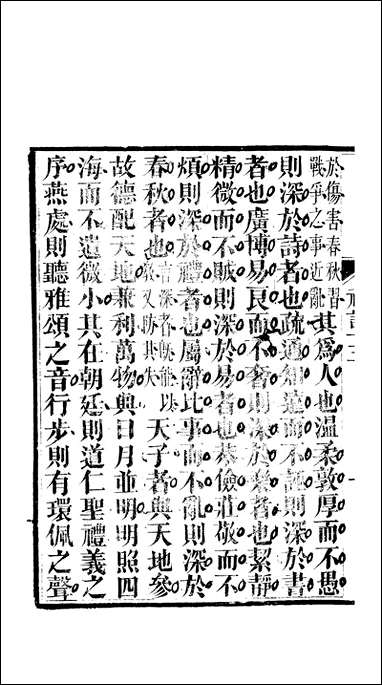 於傷害春秋習戰爭之事近亂其爲人也溫柔敦厚而不愚
則深於詩者也疏通知遠而不誣則深於書
者也廣博易良而不奢則深於樂者也絜靜
精微而不賊則深於易者也恭儉莊敬而不
煩則深於禮者也屬辭比事而不亂則深於
春秋者也言深者旣能以敎又防其失天子者與天地參
故德配天地兼利萬物與日月並明明照四
海而不遺微小其在朝廷則道仁聖禮義之
序燕處則聽雅頌之音行步則有環佩之聲